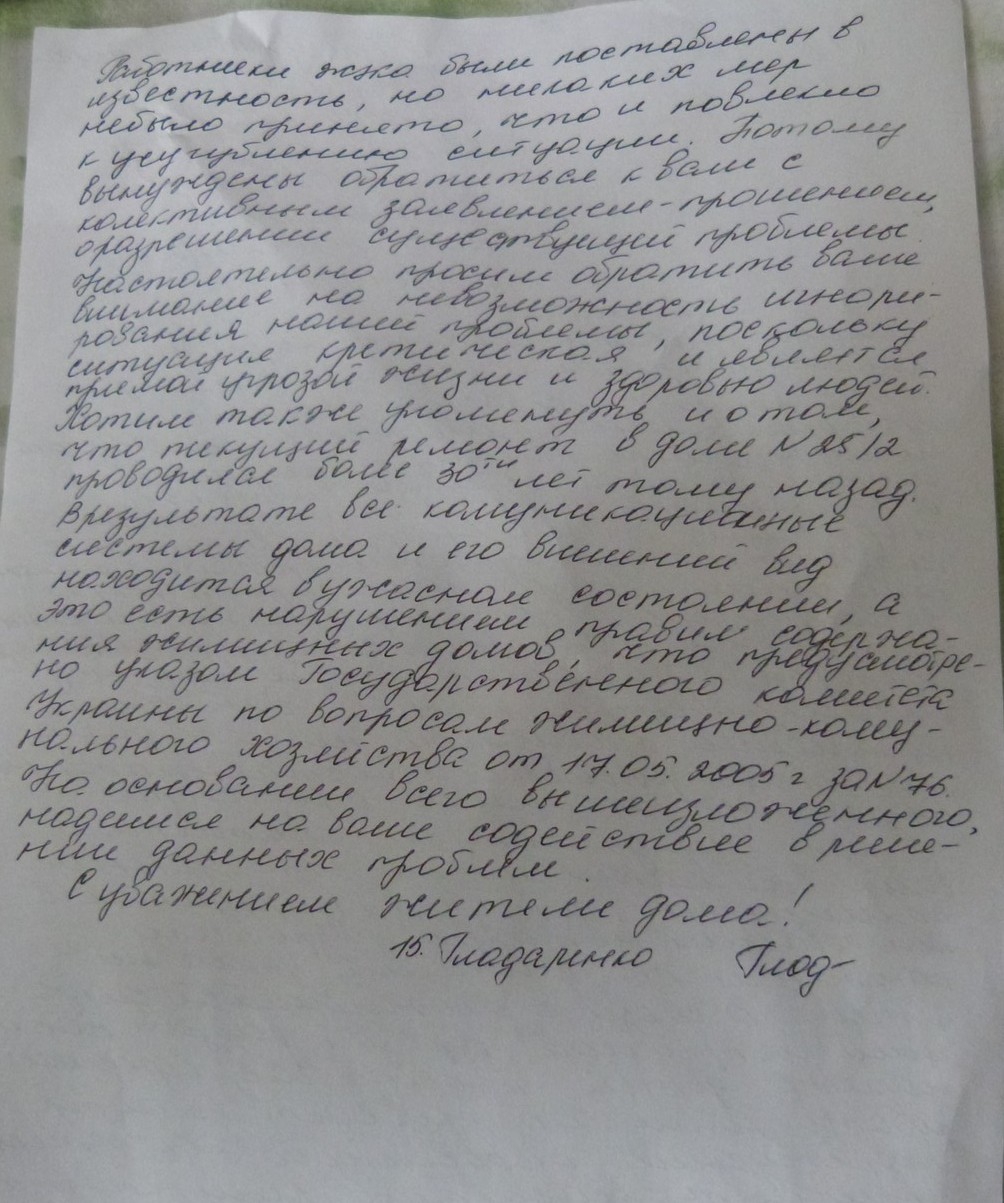 Работники жэка были поставлены в
известность, но никаких мер
небыло принято, что и повлекло
к усугублению ситуации. Потому
вынуждены обратиться к вам с
колективным заявлением-прошением,
о разрешении существующей проблемы.
Настоятельно просим обратить ваше
внимание на невозможность игнори-
рования нашей проблемы, поскольку
ситуация критическая и является
прямой угрозой жизни и здоровью людей.
Хотим также упомянуть и о том,
что текущий ремонт в доме N 25/2
проводился более 30ти лет тому назад.
В результате все комуникационные
системы дома и его внешний вид
находится в ужасном состоянии, а
это есть нарушением правил содержа-
ния жилищных домов, что предусмотре-
но указом Государственного комитета
Украины по вопросам жилищно-кому-
нального хозяйства от 17.05.2005г за N 76.
На основании всего вышеизложенного,
надеимся на ваше содействие в реше-
нии данных проблем.
С уважением жители дома!
15. Гладаренко Глад-